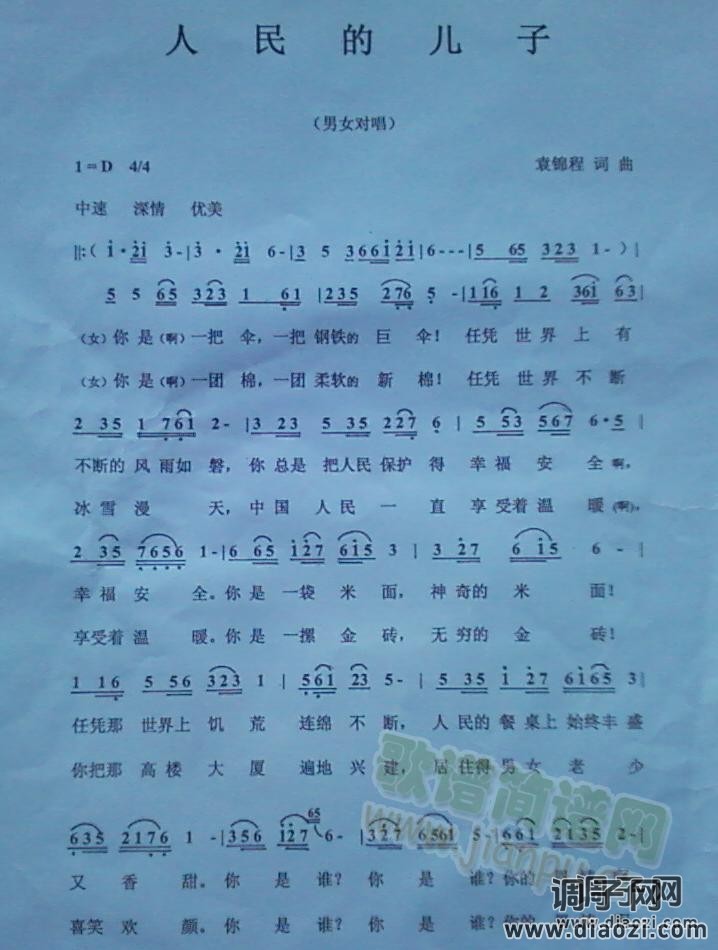 人民的儿子
（男女对唱）
1=D 4/4 袁锦程 词 曲
中速 深情 优美
‖:( i·2i 3-|3·2i 6-|3 5 3 66i2i|6---|5 65 323 1-)|
5 5 65 323 1 61|235 276 5-|116 1 2 36i 63|
（女）你是（啊）一把 伞，一把 钢铁的 巨 伞！任凭 世 界 上 有
（女）你是（啊）一团 棉，一团 柔软的 新 棉！任凭 世 界 不 断
2 35 1 761 2-|3 23 5 35 227 6|5 53 567 6·5|
不断的 风 雨如 磐，你 总是 把人民 保护 得 幸 福 安 全啊，
冰 雪 漫 天，中国 人 民 一 直 享 受着 温 暖（啊），
2 35 7656 1-|6 65 i27 6i5 3|3 27 6 i5 6-|
幸 福 安 全。你 是 一 袋 米 面，神 奇的 米 面！
享受着 温 暖。你 是 一 摞 金 砖，无 穷的 金 砖！
1 16 5 56 323 1|561 23 5-|5 35 i 27 6165 3|
任凭那 世界上 饥 荒 连绵 不 断，人 民的 餐 桌上 始终丰 盛
你把那 高楼 大 厦 遍地 兴 建，居 住得 男 女 老 少
635 2176 1-|356 i27 65 6-|327 6561 5-|661 2135 2-|
又 香 甜。你 是 谁？你 是 谁？你的
喜 笑 欢 颜。你 是 谁？你 是 谁？你的
歌谱简谱网
www.jianpu
调子网
www.diaozi.com